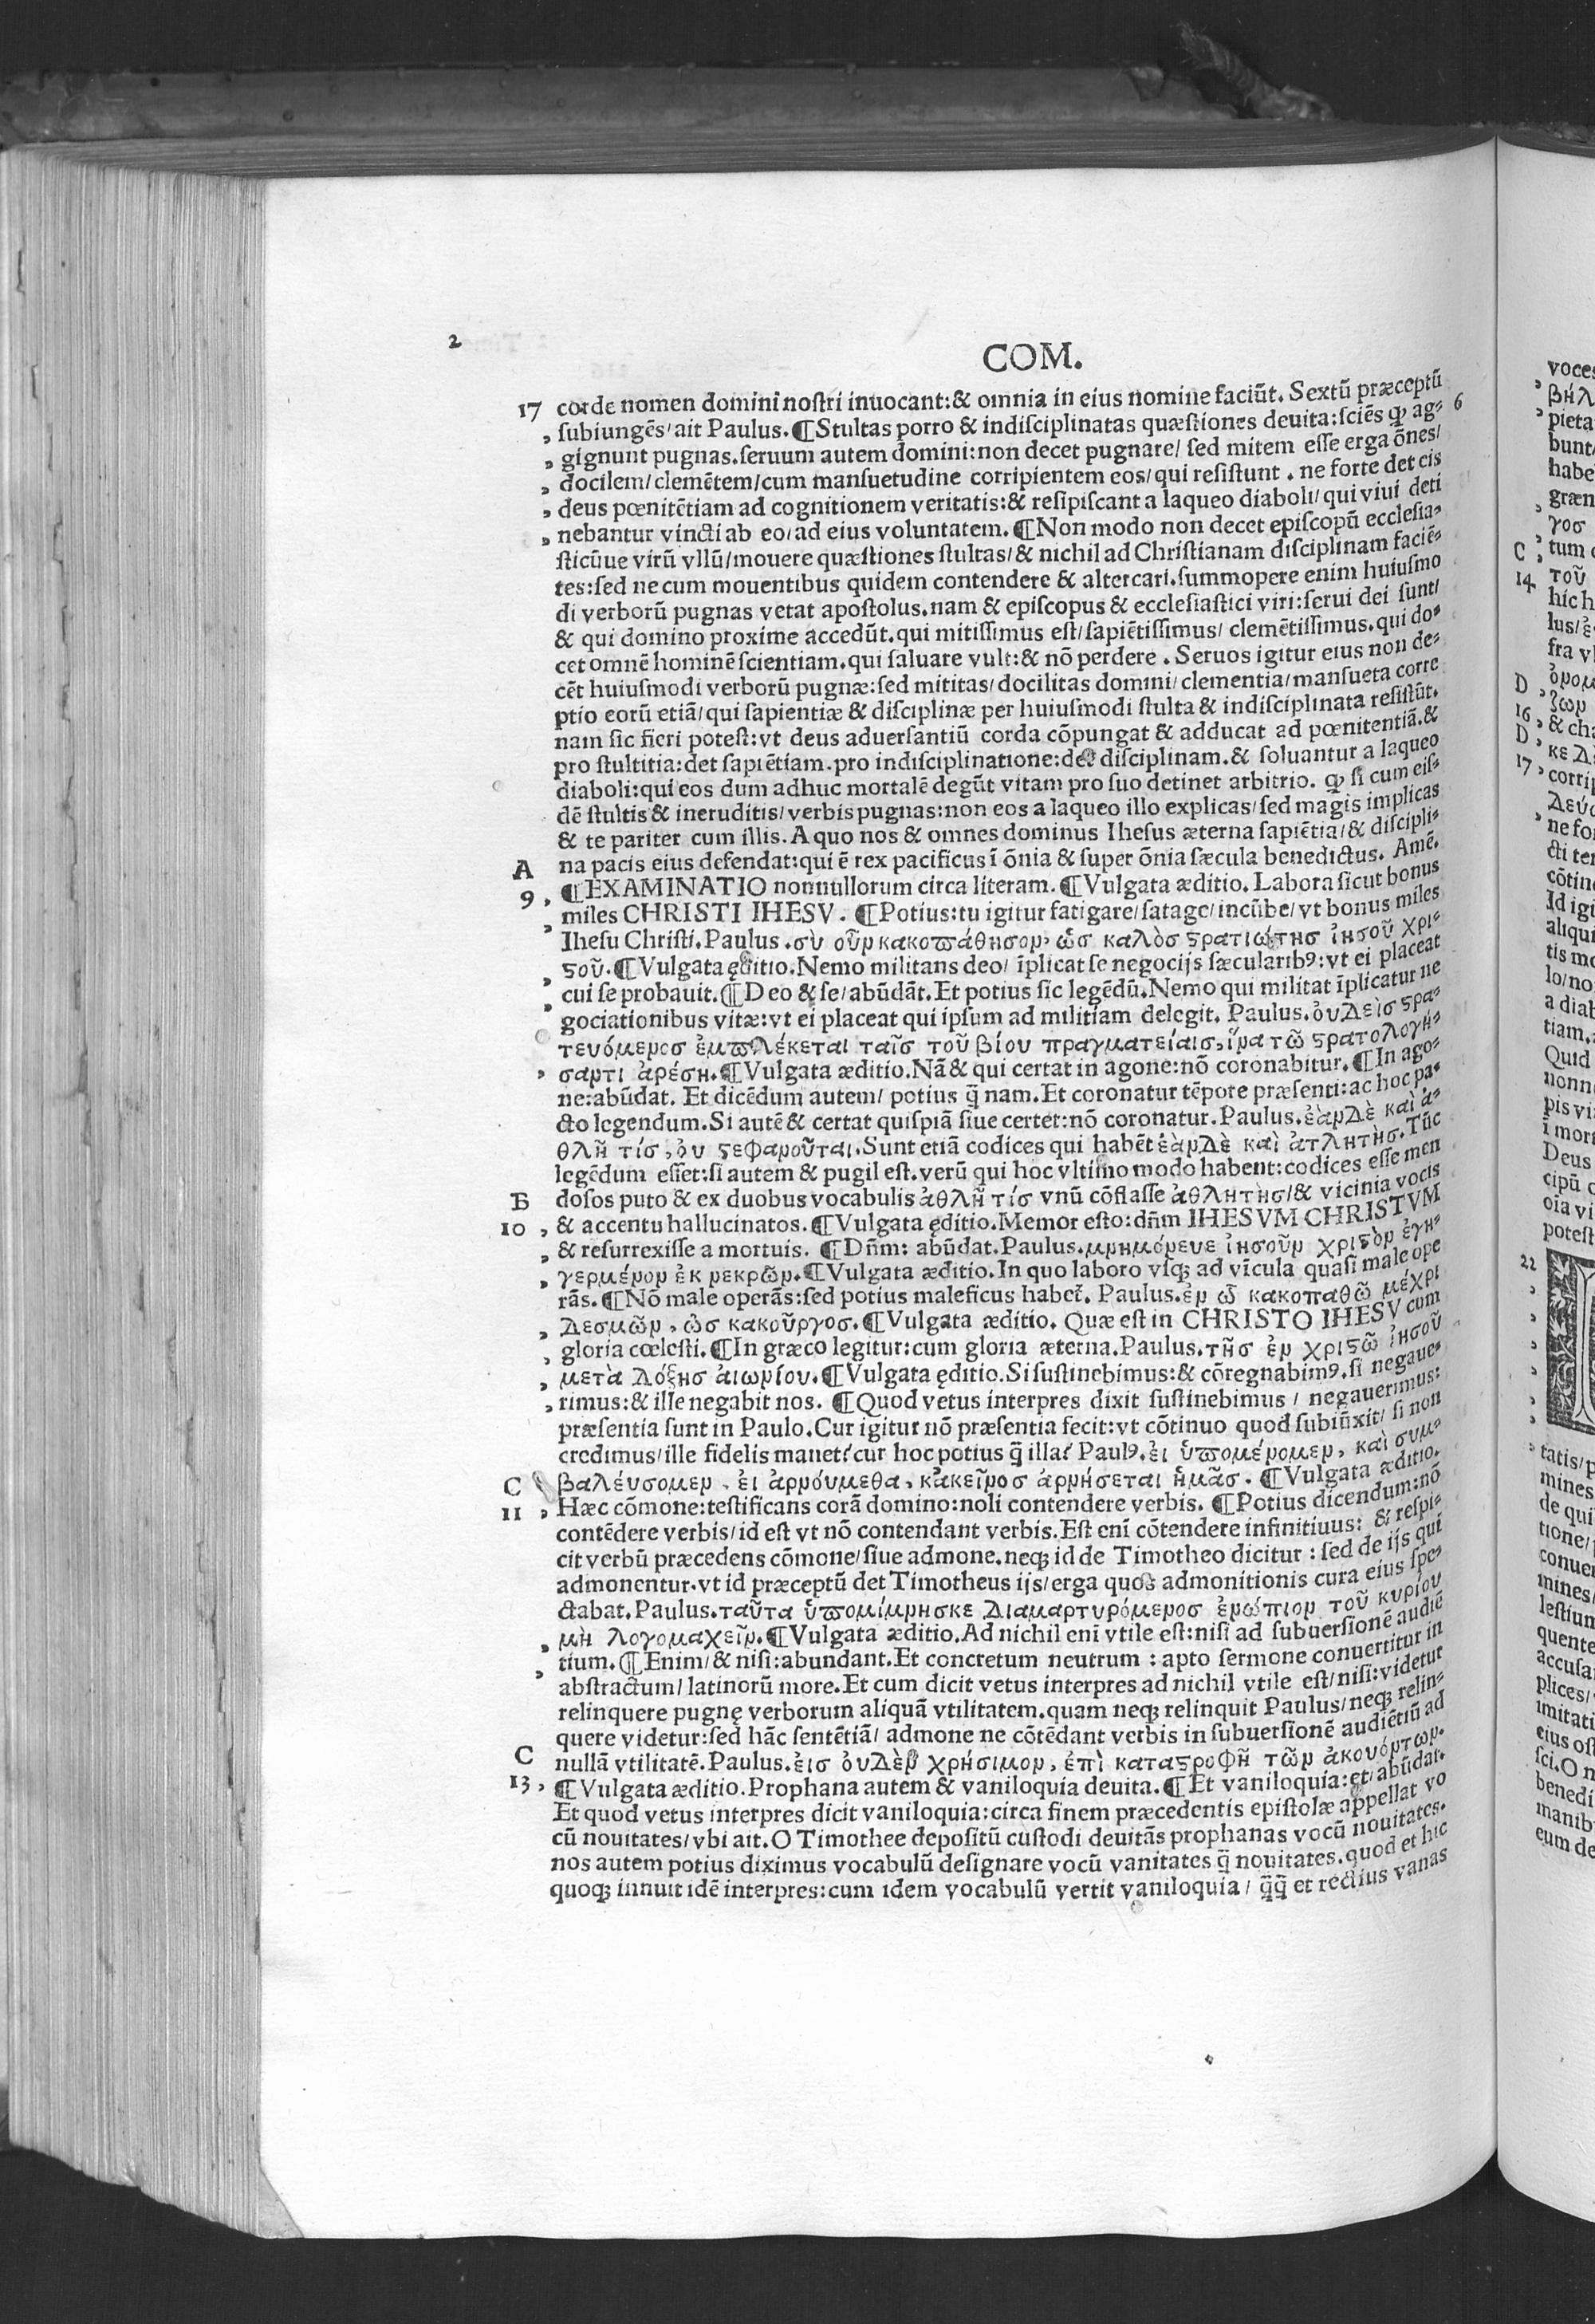 2
COM.
17 corde nomen domini nostri inuocant:& omnia in eius nomine faciũt. Sextũ præceptũ
, subiungẽs/ait Paulus.¶Stultas porro & indisciplinatas quæstiones deuita:sciẽs ꝙ ag- 6
, gignunt pugnas.seruum autem domini:non decet pugnare/ sed mitem esse erga õnes/
, docilem/clemẽtem/cum mansuetudine corripientem eos/qui resistunt . ne forte det eis
, deus pœnitẽtiam ad cognitionem veritatis:& resipiscant a laqueo diaboli/qui viui deti
, nebantur vincti ab eo/ad eius voluntatem.¶Non modo non decet episcopũ ecclesia-
sticũue virũ vllũ/mouere quæstiones stultas/& nichil ad Christianam disciplinam faciẽ-
tes:sed ne cum mouentibus quidem contendere & altercari.summopere enim huiusmo
di verborũ pugnas vetat apostolus.nam & episcopus & ecclesiastici viri:serui dei sunt/
& qui domino proxime accedũt.qui mitissimus est/sapiẽtissimus/ clemẽtissimus.qui do-
cet omnẽ hominẽ scientiam.qui saluare vult:& nõ perdere . Seruos igitur eius non de-
cẽt huiusmodi verborũ pugnæ:sed mititas/docilitas domini/clementia/mansueta corre
ptio eorũ etiã/qui sapientiæ & disciplinæ per huiusmodi stulta & indisciplinata resistũt.
nam sic fieri potest:vt deus aduersantiũ corda cõpungat & adducat ad pœnitentiã.&
pro stultitia:det sapiẽtiam.pro indisciplinatione:det disciplinam.& soluantur a laqueo
diaboli:qui eos dum adhuc mortalẽ degũt vitam pro suo detinet arbitrio. ꝙ si cum eis-
dẽ stultis & ineruditis/verbis pugnas:non eos a laqueo illo explicas/sed magis implicas
& te pariter cum illis. A quo nos & omnes dominus Ihesus æterna sapiẽtia/& discipli-
A na pacis eius defendat:qui ẽ rex pacificus ĩ õnia & super õnia sæcula benedictus. Amẽ.
9 , ¶EXAMINATIO nonnullorum circa literam.¶Vulgata æditio.Labora sicut bonus
, miles CHRISTI IHESV. ¶Potius:tu igitur fatigare/satage/incũbe/vt bonus miles
Ihesu Christi.Paulus .συ οὖν κακοπάθησον, ὡς καλὸσ ϛρατιώτησ ἰησοῦ χρι-
, ϛοῦ.¶Vulgata ęditio.Nemo militans deo/ ĩplicat se negocijs sæcularibꝰ:vt ei placeat
, cui se probauit.¶Deo & se/abũdãt.Et potius sic legẽdũ.Nemo qui militat ĩplicatur ne
gociationibus vitæ:vt ei placeat qui ipsum ad militiam delegit. Paulus.ὀυδεὶσ ϛρα-
τευόμενοσ ἐμπλέκεται ταῖσ τοῦ βίου πραγματείαισ,ἵνα τῶ ϛρατολογή-
, σαντι ἀρέση.¶Vulgata æditio.Nã & qui certat in agone:nõ coronabitur.¶In ago-
ne:abũdat. Et dicẽdum autem/ potius q̃ nam.Et coronatur tẽpore præsenti:ac hoc pa-
cto legendum.Si autẽ & certat quispiã siue certet:nõ coronatur.Paulus.ἐὰνδὲ καὶ ἀ-
θλῆ τίσ,ὀυ ϛεφανοῦται.Sunt etiã codices qui habẽt ἐὰνδὲ καὶ ἀτλητὴσ.Tũc
legẽdum esset:si autem & pugil est.verũ qui hoc vltimo modo habent:codices esse men
B dosos puto & ex duobus vocabulis ἀθλῆ τίσ vnũ cõflasse ἀθλητὴσ/& vicinia vocis
10 , & accentu hallucinatos.¶Vulgata ęditio.Memor esto:dñm IHESVM CHRISTVM
, & resurrexisse a mortuis. ¶Dñm: abũdat.Paulus.μνημόνευε ἰησοῦν χριϛὸν ἐγη-
, γερμένον ἐκ νεκρῶν.¶Vulgata æditio.In quo laboro vsqꝫ ad vĩcula quasi male ope
rãs.¶Nõ male operãs:sed potius maleficus habet̃. Paulus.ἐν ὧ κακοπαθῶ μέχρι
, δεσμῶν, ὡσ κακοῦργοσ.¶Vulgata æditio. Quæ est in CHRISTO IHESV cum
, gloria cœlesti.¶In græco legitur:cum gloria æterna.Paulus.τῆσ ἐν χριϛῶ ἰησοῦ
, μετὰ δόξησ ἀιωνίου.¶Vulgata ęditio.Si sustinebimus:& cõregnabimꝰ.si negaue-
, rimus:& ille negabit nos. ¶Quod vetus interpres dixit sustinebimus / negauerimus:
præsentia sunt in Paulo.Cur igitur nõ præsentia fecit:vt cõtinuo quod subiũxit/ si non
credimus/ille fidelis manet?cur hoc potius q̃ illa? Paulꝰ.ἐι ὑπομένομεν, καὶ συμ-
C βαλέυσομεν , ἐι ἀρνόυμεθα, κἀκεῖνοσ ἀρνήσεται ἡμᾶσ. ¶Vulgata æditio.
11 , Hæc cõmone:testificans corã domino:noli contendere verbis. ¶Potius dicendum:nõ
contẽdere verbis/id est vt nõ contendant verbis.Est enĩ cõtendere infinitiuus: & respi-
cit verbũ præcedens cõmone/siue admone.neqꝫ id de Timotheo dicitur : sed de ijs qui
admonentur.vt id præceptũ det Timotheus ijs/erga quos admonitionis cura eius spe-
ctabat.Paulus.ταῦτα ὑπομίμνησκε διαμαρτυρόμενοσ ἐνώπιον τοῦ κυρίου
, μὴ λογομαχεῖν.¶Vulgata æditio.Ad nichil enĩ vtile est:nisi ad subuersionẽ audiẽ
, tium.¶Enim/& nisi:abundant.Et concretum neutrum : apto sermone conuertitur in
abstractum/latinorũ more.Et cum dicit vetus interpres ad nichil vtile est/nisi:videtur
relinquere pugnę verborum aliquã vtilitatem.quam neqꝫ relinquit Paulus/neqꝫ relin-
quere videtur:sed hãc sentẽtiã/ admone ne cõtẽdant verbis in subuersionẽ audiẽtiũ ad
C nullã vtilitatẽ.Paulus.ἐισ ὀυδὲν χρήσιμον, ἐπὶ καταϛροφῆ τῶν ἀκουόντων.
13, ¶Vulgata æditio.Prophana autem & vaniloquia deuita.¶Et vaniloquia:et/abũdat.
Et quod vetus interpres dicit vaniloquia:circa finem præcedentis epistolæ appellat vo
cũ nouitates/vbi ait.O Timothee depositũ custodi deuitãs prophanas vocũ nouitates.
nos autem potius diximus vocabulũ designare vocũ vanitates q̃ nouitates.quod et hic
quoqꝫ innuit idẽ interpres:cum idem vocabulũ vertit vaniloquia/ q̃q̃ et rectius vanas